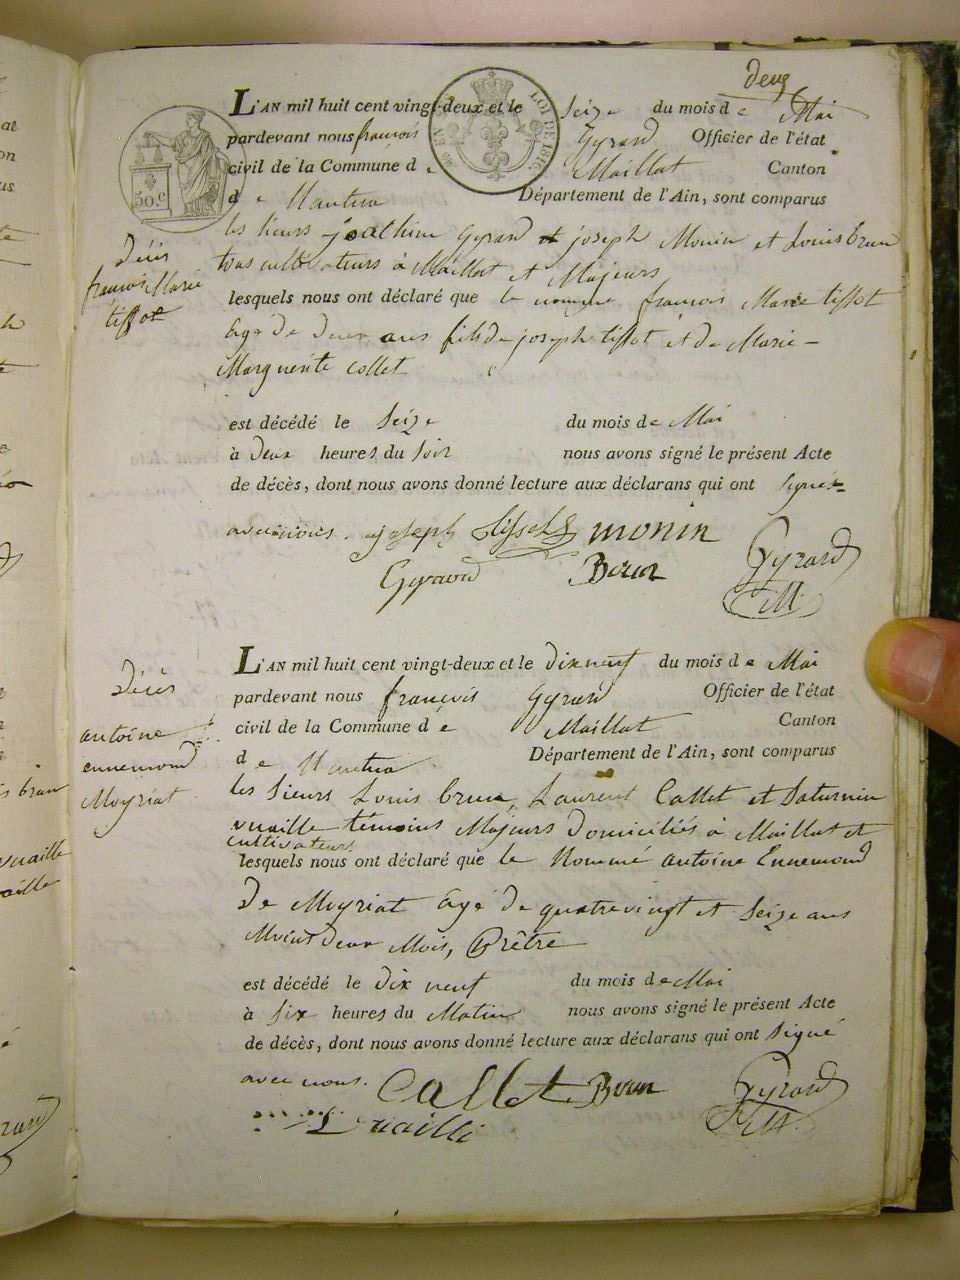 deux
L'AN mil huit cent vingt-deux et le Seize du mois de Mai
pardevant nous françois Gyrard Officier de l'état
civil de la Commune de Maillat Canton
de Nantua Département de l'Ain, sont comparus
LOI DE 1816
50.c
Décès
françois Marie
tissot
les sieurs joathim Gyrard et joseph Monin et Louis Brun
tous cultivateurs à Maillat et Majeurs
lesquels nous ont déclaré que le nommé françois Marie tissot
agé de deux ans fils de joseph tissot et de Marie -
Marguerite Collet
est décédé le Seize du mois de Mai
à deux heures du Soir nous avons signé le présent Acte
de décès, dont nous avons donné lecture aux déclarans qui ont signés
avec nous. joseph tissot monin Gyrard
Gyrard Brun M.
Décès
antoine
ennemond
Moyriat
L'AN mil huit cent vingt-deux et le dix neuf du mois de Mai
pardevant nous françois Gyrard Officier de l'état
civil de la Commune de Maillat Canton
de Nantua Département de l'Ain, sont comparus
les Sieurs Louis brun, Laurent Callet et Saturnin
vuaille témoins Majeurs domiciliés à Maillat et
cultivateurs
lesquels nous ont déclaré que le Nommé antoine Ennemond
De Moyriat agé de quatrevingt et Seize ans
Moins deux Mois, Prêtre
est décédé le dix neuf du mois de Mai
à Six heures du Matin nous avons signé le présent Acte
de décès, dont nous avons donné lecture aux déclarans qui ont Signé
avec nous. Callet Brun Gyrard
Vuaille M.